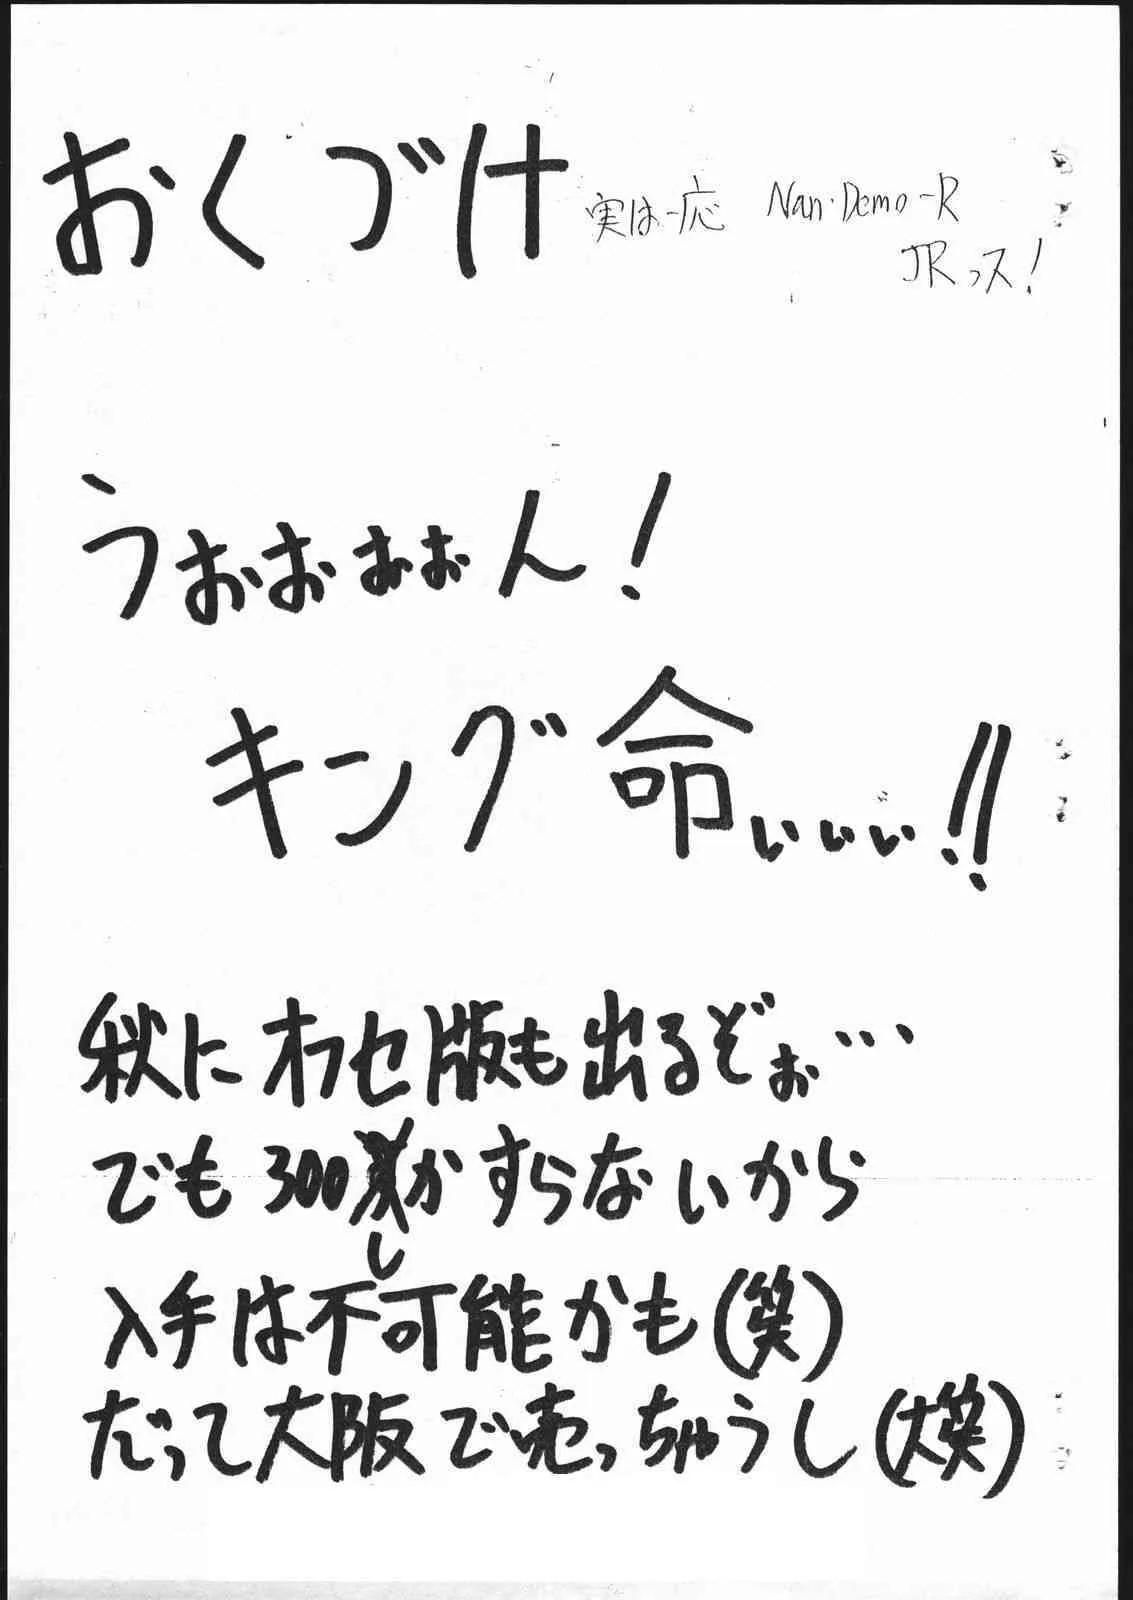 おくづけ 実は一応 Nan・Demo-R
JRっス!
うおおぉぉん!
キング命ぃぃぃ!!
秋にオフセ版も出るぞぉ…
でも300しかすらないから
入手は不可能かも(笑)
だって大阪で売っちゃうし(大笑)